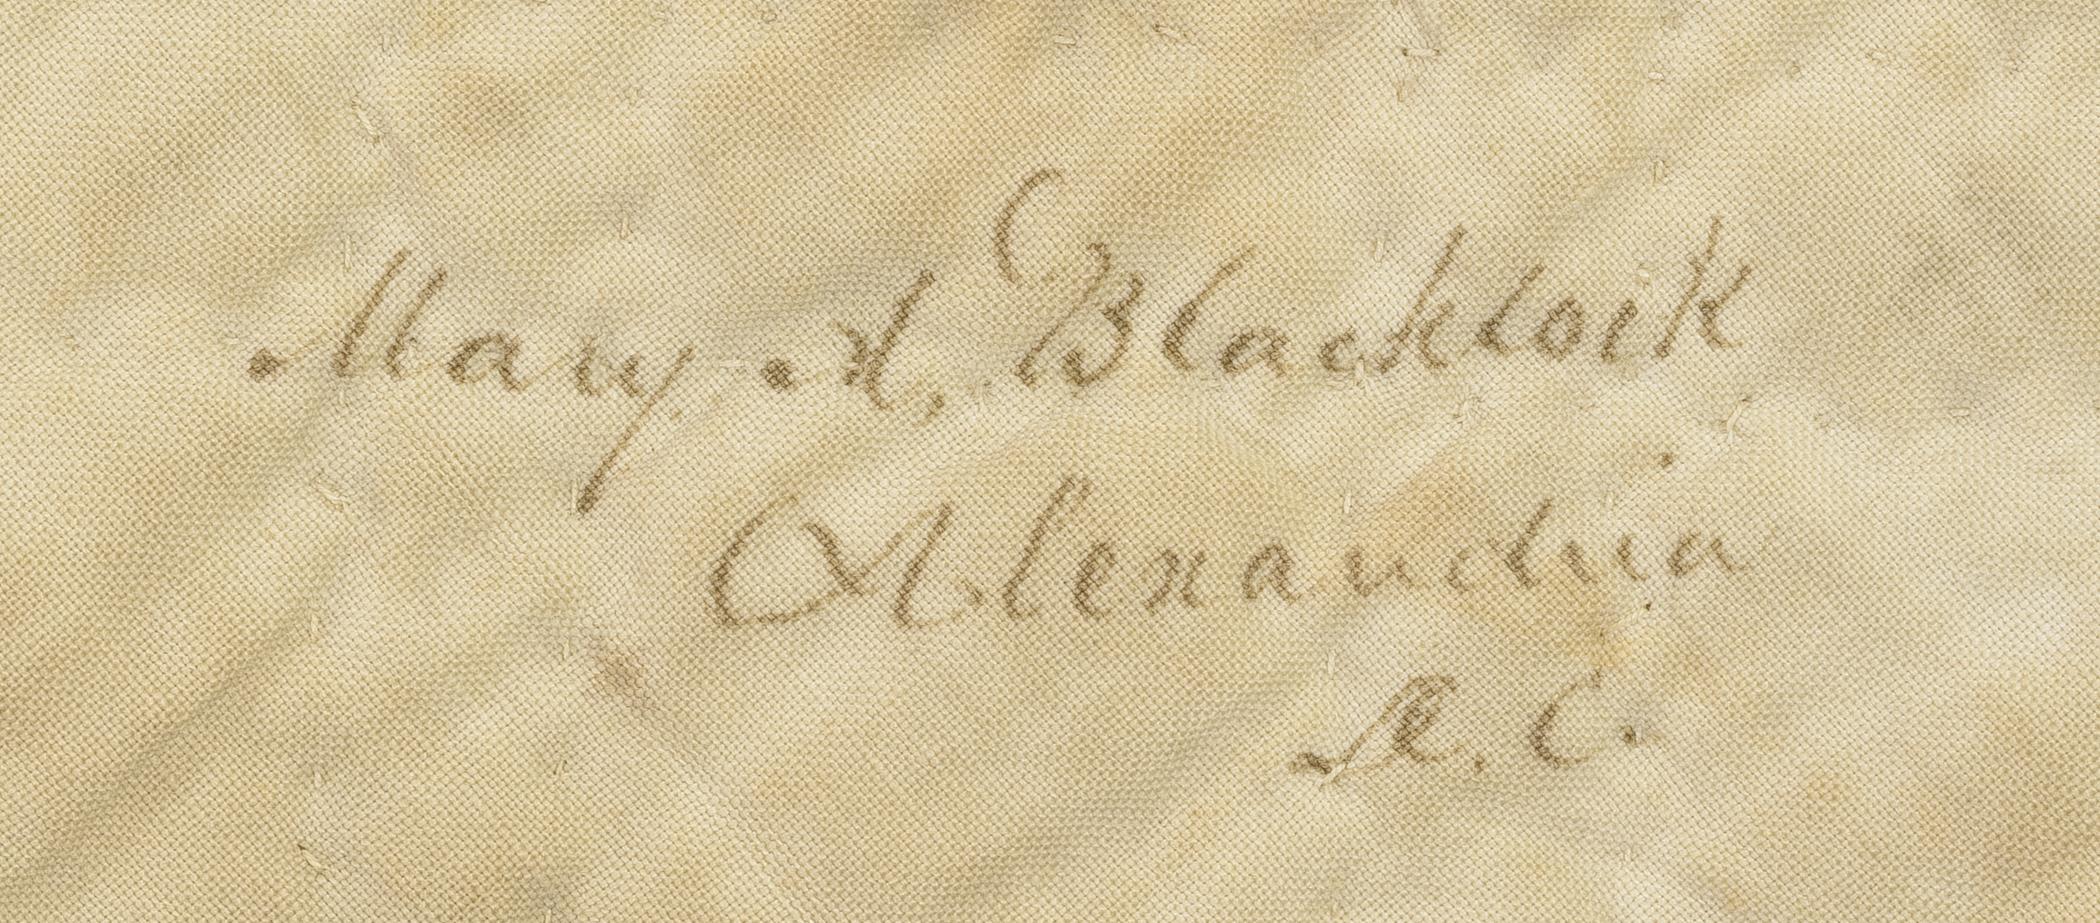 Mary A. Blacklock
Alexandria
D. C.